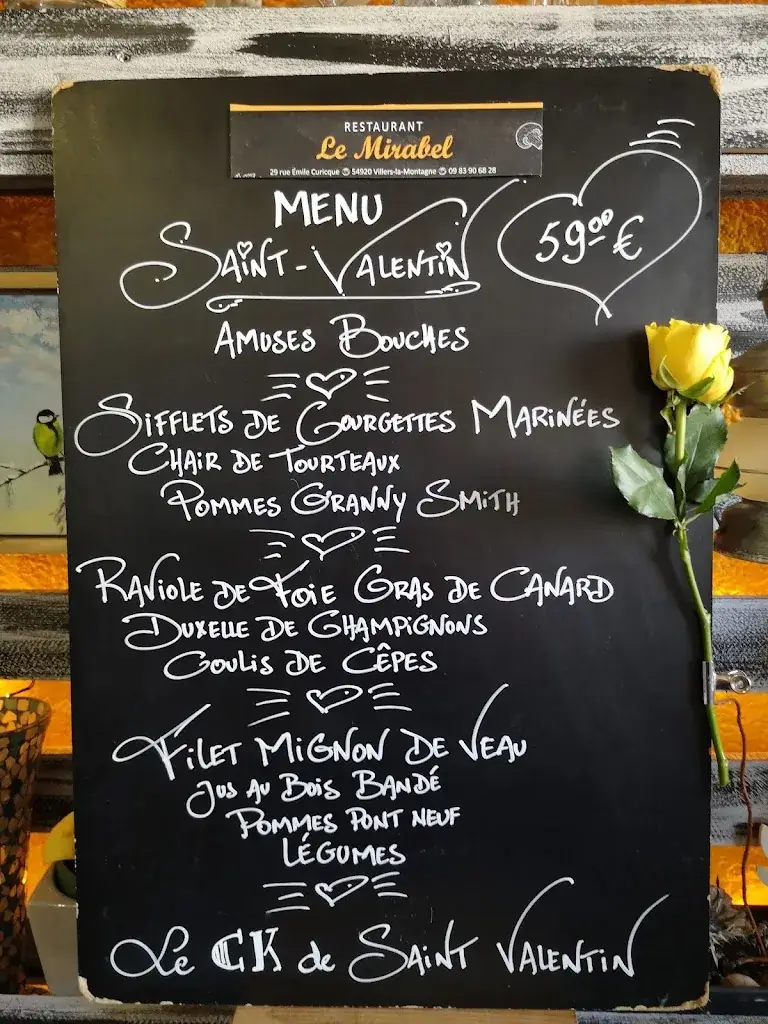 RESTAURANT
Le Mirabel
29 rue Émile Curicque 54920 Villers-la-Montagne 09 83 90 68 28
MENU
SAINT-VALENTIN
59.00 €
AMUSES BOUCHES
SIFFLETS DE COURGETTES MARINÉES
CHAIR DE TOURTEAUX
POMMES GRANNY SMITH
RAVIOLE DE FOIE GRAS DE CANARD
DUXELLE DE CHAMPIGNONS
COULIS DE CÊPES
FILET MIGNON DE VEAU
JUS AU BOIS BANDÉ
POMMES PONT NEUF
LÉGUMES
Le CK de SAINT VALENTIN